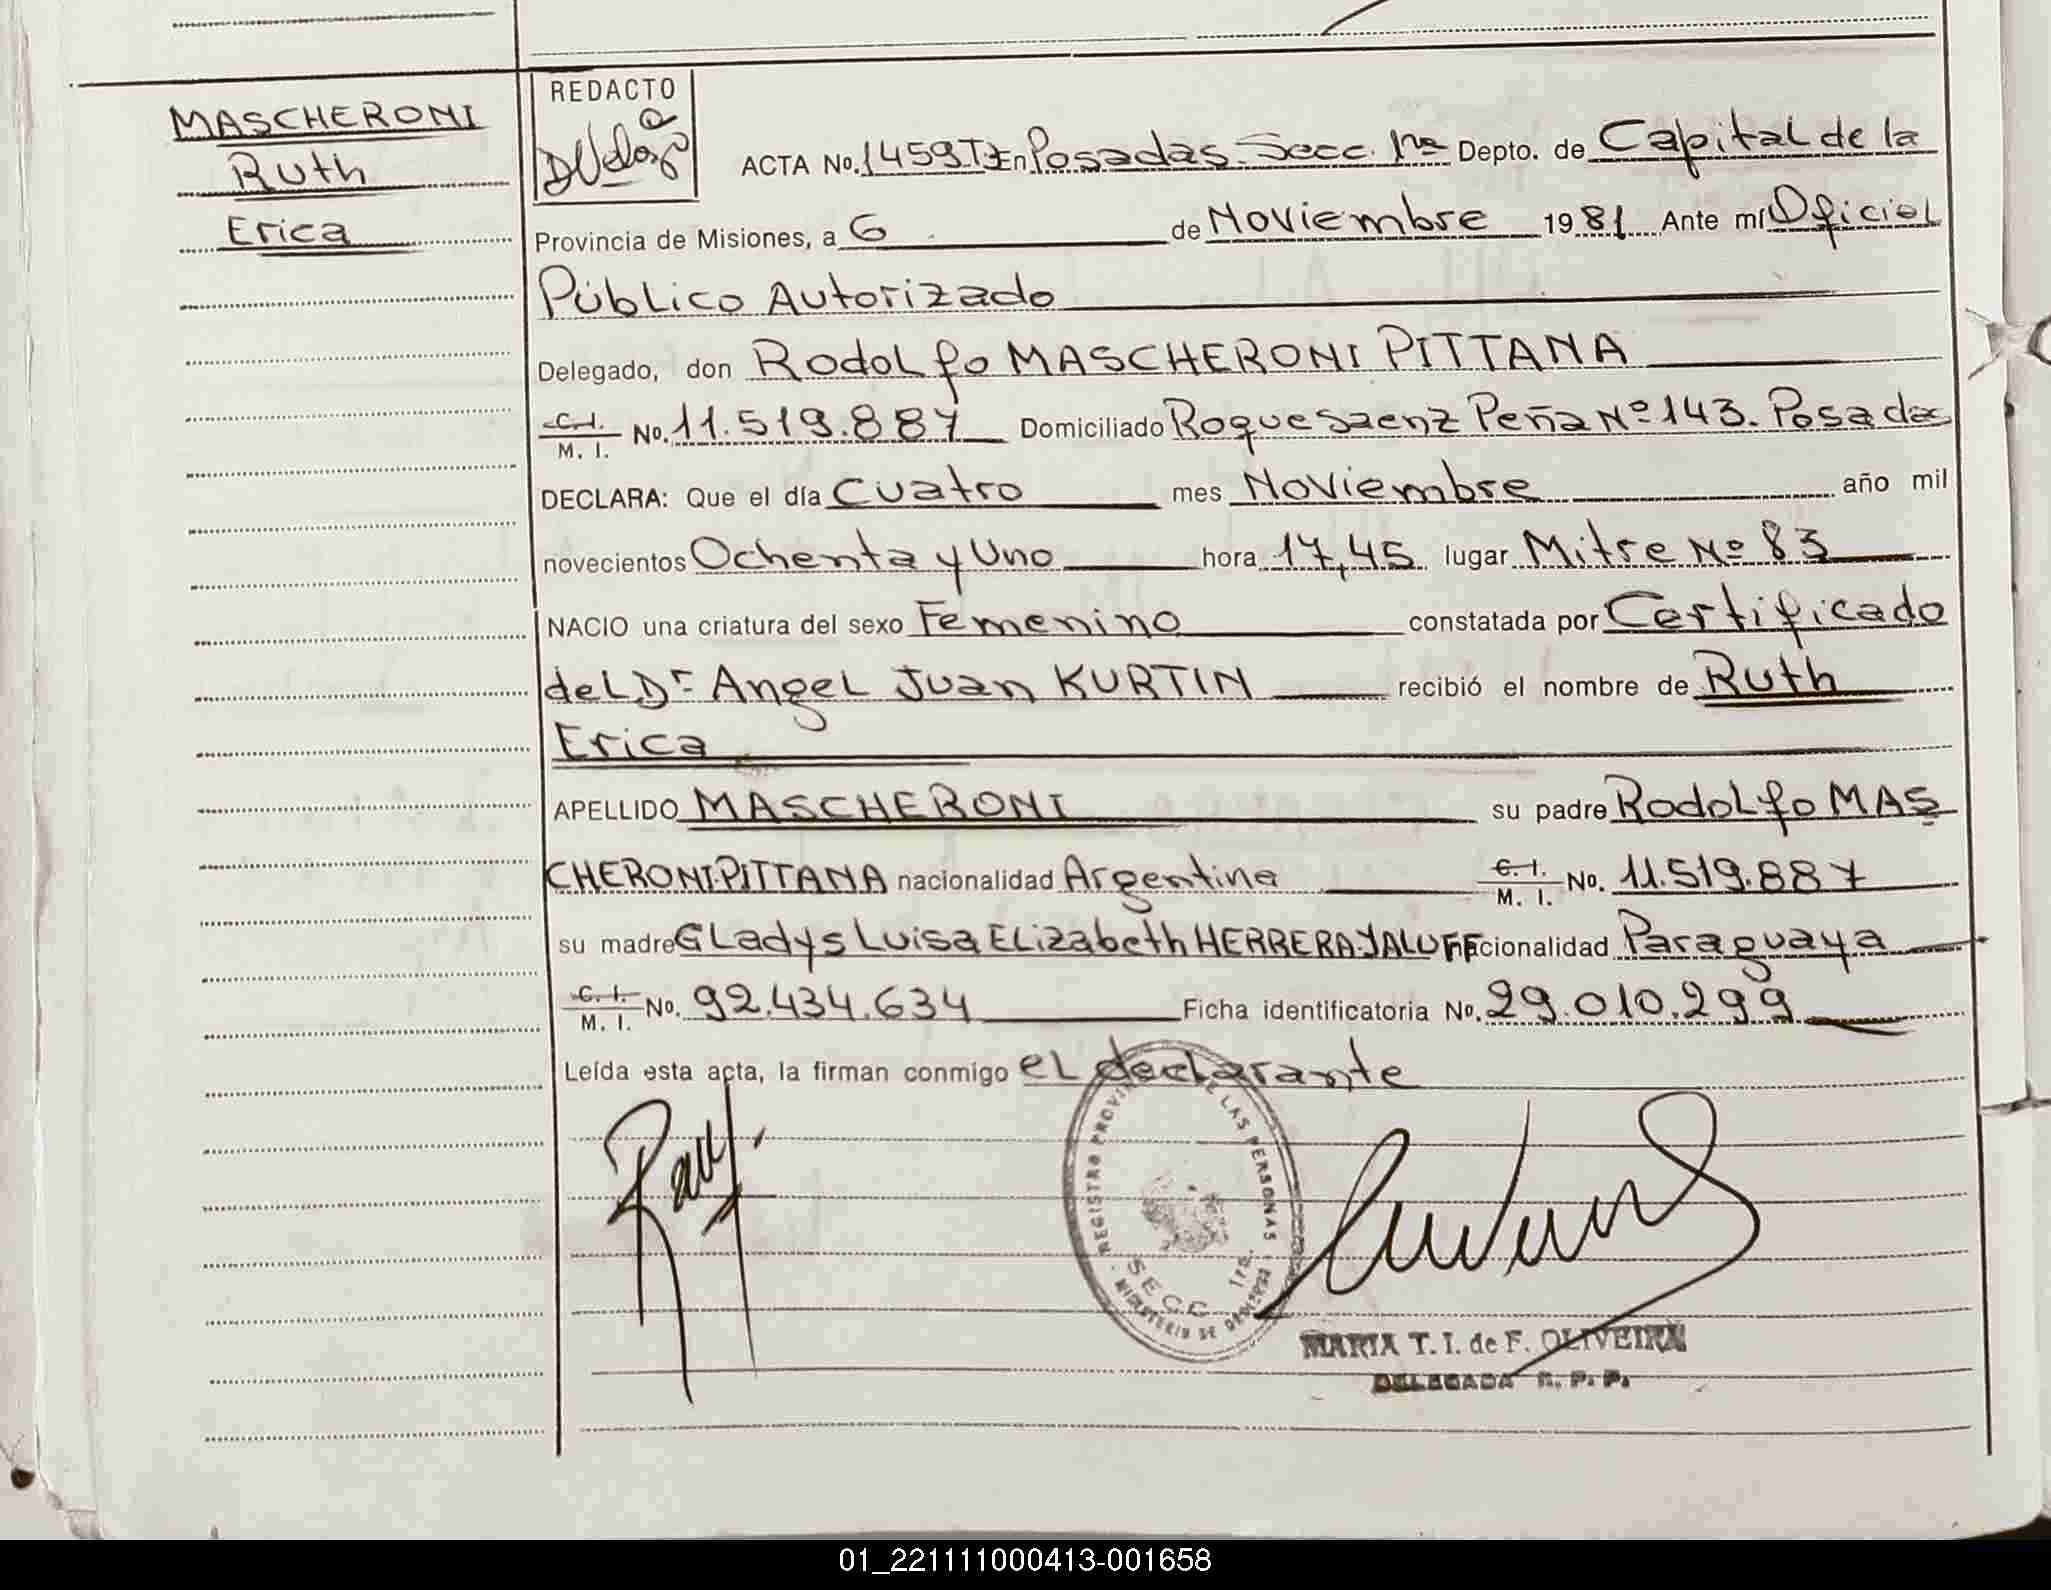 MASCHERONI
Ruth
Erica
REDACTO
ACTA No. 1459 TI En Posadas. Secc. 1ra Depto. de Capital de la
Provincia de Misiones, a 6 de Noviembre 1981 Ante mí Oficial
Público Autorizado
Delegado, don Rodolfo MASCHERONI PITTANA
C.I. M. I. No. 11.519.887 Domiciliado Roque Saenz Peña Nº 143. Posadas
DECLARA: Que el día Cuatro mes Noviembre año mil
novecientos Ochenta y Uno hora 17,45 lugar Mitre Nº 83
NACIO una criatura del sexo Femenino constatada por Certificado
del Dr. Angel Juan KURTIN recibió el nombre de Ruth
Erica
APELLIDO MASCHERONI su padre Rodolfo MAS
CHERONI-PITTANA nacionalidad Argentina C. I. M. I. No. 11.519.887
su madre Gladys Luisa Elizabeth HERRERA-YALUFF nacionalidad Paraguaya
C. I. M. I. No. 92.434.634 Ficha identificatoria No. 29.010.299
Leída esta acta, la firman conmigo el declarante
REGISTRO PROVINCIAL DE LAS PERSONAS
SECC. 1ra.
MINISTERIO DE GOBIERNO
MARIA T. I. de F. OLIVEIRA
DELEGADA R. P. P.
01_221111000413-001658